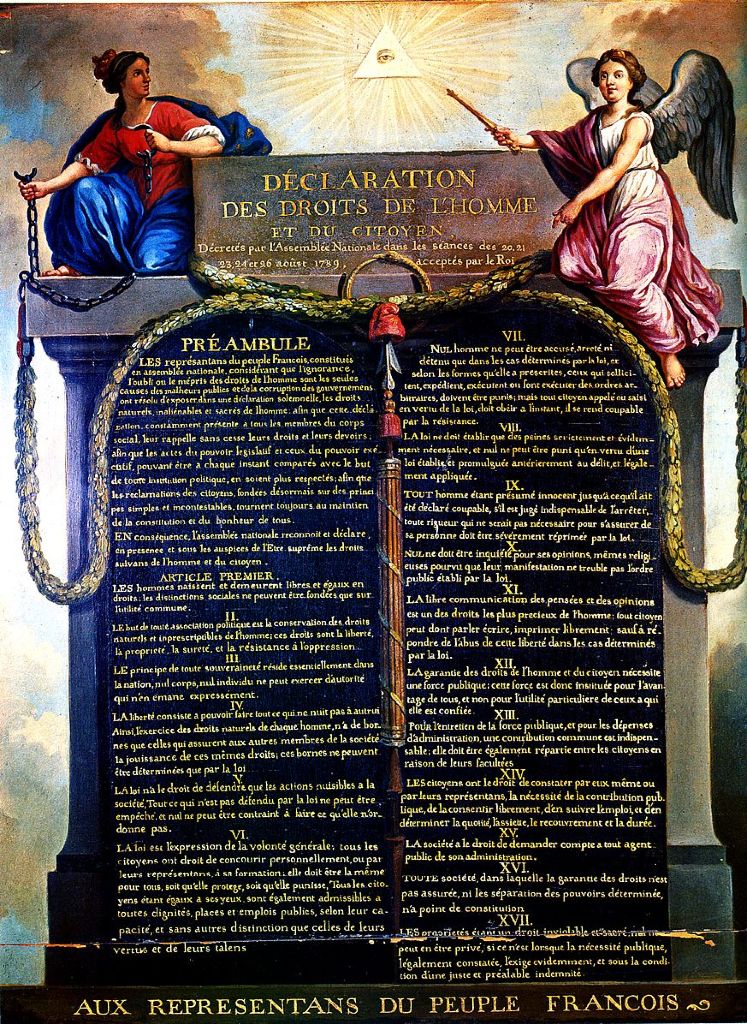 DÉCLARATION
DES DROITS DE L'HOMME
ET DU CITOYEN,
Décretés par l'Assemblée Nationale dans les séances des 20, 21
23, 24 et 26 aoûst 1789, acceptés par le Roi
PRÉAMBULE
LES représantans du peuple Francois, constitués
en assemblée nationale, considérant que l'ignorance,
l'oubli ou le mépris des droits de l'homme sont les seules
causes des malheurs publics et de la corruption des gouvernemens
ont résolu d'exposer dans une déclaration solemnelle, les droits
naturels, inaliénables et sacrés de l'homme; afin que cette décla-
ration, constamment présente à tous les membres du corps
social, leur rappelle sans cesse leurs droits et leurs devoirs;
afin que les actes du pouvoir législatif et ceux du pouvoir exé-
cutif, pouvant être à chaque instant comparés avec le but
de toute institution politique, en soient plus respectés; afin que
les reclamations des citoyens, fondées désormais sur des princi-
pes simples et incontestables, tournent toujours au maintien
de la constitution et du bonheur de tous.
EN conséquence, l'assemblée nationale reconnoit et déclare,
en presence et sous les auspices de l'Etre suprême les droits
suivans de l'homme et du citoyen.
ARTICLE PREMIER.
LES hommes naissent et demeurent libres et égaux en
droits; les distinctions sociales ne peuvent être fondées que sur
l'utilité commune.
II.
LE but de toute association politique est la conservation des droits
naturels et inprescriptibles de l'homme; ces droits sont la liberté,
la propriété, la sureté, et la résistance à l'oppression.
III.
LE principe de toute souveraineté réside essentiellement dans
la nation, nul corps, nul individu ne peut exercer d'autorité
qui n'en émane expressément.
IV.
LA liberté consiste a pouvoir faire tout ce qui ne nuit pas à autrui
Ainsi, l'exercice des droits naturels de chaque homme, n'a de bor-
nes que celles qui assurent aux autres membres de la société
la jouissance de ces mêmes droits; ces bornes ne peuvent
être déterminées que par la loi
V.
LA loi n'a le droit de défendre que les actions nuisibles à la
société. Tout ce qui n'est pas défendu par la loi ne peut être
empêché, et nul ne peut être contraint à faire ce qu'elle n'or-
donne pas.
VI.
LA loi est l'expression de la volonté générale; tous les
citoyens ont droit de concourir personnellement, ou par
leurs représentans, à sa formation; elle doit être la même
pour tous, soit qu'elle protege, soit qu'elle punisse. Tous les cito-
yens étant égaux à ses yeux, sont également admissibles à
toutes dignités, places et emplois publics, selon leur ca-
pacité, et sans autres distinction que celles de leurs
vertus et de leurs talens
VII.
NUL homme ne peut être accusé, arreté ni
détenu que dans les cas déterminés par la loi, et
selon les formes qu'elle a prescrites, ceux qui sollici-
tent, expédient, exécutent ou font exécuter des ordres ar-
bitraires, doivent être punis; mais tout citoyen appelé ou saisi
en vertu de la loi, doit obéir a l'instant, il se rend coupable
par la résistance.
VIII.
LA loi ne doit établir que des peines strictement et évidem-
ment nécessaire, et nul ne peut être puni qu'en vertu d'une
loi établie et promulguée antérierement au délit, et légale-
ment appliquée.
IX.
TOUT homme étant présumé innocent jusqu'à ce qu'il ait
été déclaré coupable, s'il est jugé indispensable de l'arrêter,
toute rigueur qui ne serait pas nécessaire pour s'assurer de
sa personne doit être sévérement réprimée par la loi.
X.
NUL ne doit être inquiété pour ses opinions, mêmes religi-
euses pourvu que leur manifestation ne trouble pas l'ordre
public établi par la loi.
XI.
LA libre communication des pensées et des opinions
est un des droits les plus precieux de l'homme; tout citoyen
peut dont parler écrire, imprimer librement; sauf à ré-
pondre de l'abus de cette liberté dans les cas déterminés
par la loi.
XII.
LA garantie des droits de l'homme et du citoyen nécessite
une force publique; cette force est donc instituée pour l'avan-
tage de tous, et non pour l'utilité particuliere de ceux a qui
elle est confiée.
XIII.
POUR l'entretien de la force publique, et pour les dépenses
d'administration, une contribution commune est indispen-
sable; elle doit être également répartie entre les citoyens en
raison de leurs facultées
XIV.
LES citoyens ont le droit de constater par eux même ou
par leurs représentans, la nécessité de la contribution pub-
lique, de la consentir librement, d'en suivre l'emploi, et d'en
déterminer la quotité, l'assiette, le recouvrement et la durée.
XV.
LA société a le droit de demander compte a tout agent
public de son administration.
XVI.
TOUTE société, dans laquelle la garantie des droits n'est
pas assurée, ni les séparation des pouvoirs déterminée,
n'a point de constitution
XVII.
LES proprietés étant un droit inviolable et sacré, nul ne
peut en être privé, si ce n'est lorsque la nécessité publique,
légalement constatée, l'exige evidemment, et sous la condi-
tion d'une juste et préalable indemnité.
AUX REPRESENTANS DU PEUPLE FRANCOIS